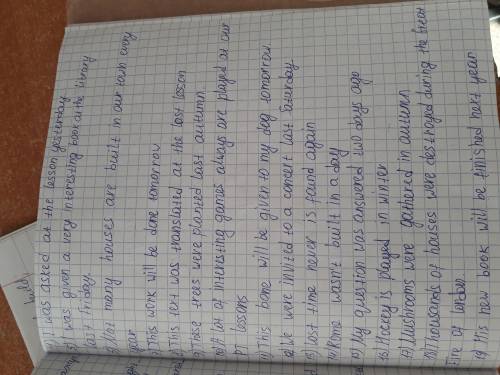 I was asked at the lesson yesterday
I was given a very interesting book at the library
last Friday.
many houses are built in our town every
year
This work will be done tomorrow
This text was translated at the last lesson
These trees were planted last autumn
10) A lot of interesting games always are played at our
PT lessons
11) This bone will be given to my dog tomorrow
We were invited to a concert last Saturday.
13) Lost time never is found again
14) Rome wasn't built in a day
15) My question was answered two days ago
16) Hockey is played in winter
17) Mushrooms were gathered in autumn
18) Thousands of houses were destroyed during the Great
Fire of
19) His new book will be finished next year